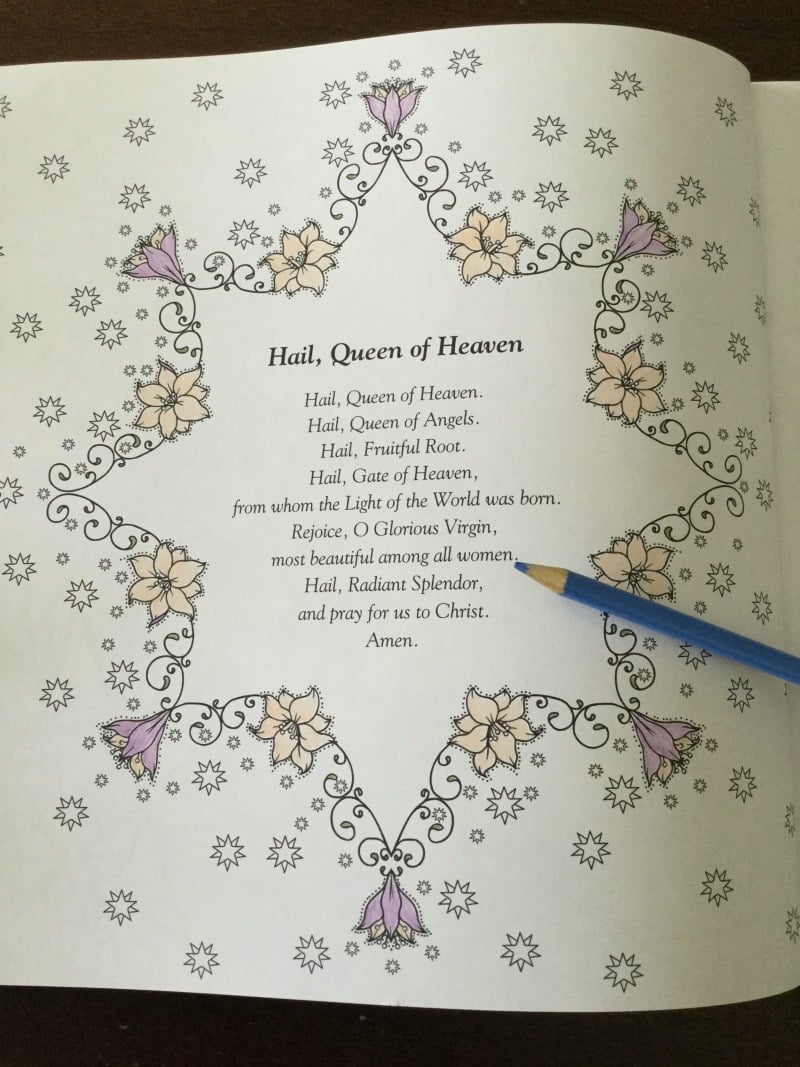 Hail, Queen of Heaven
Hail, Queen of Heaven.
Hail, Queen of Angels.
Hail, Fruitful Root.
Hail, Gate of Heaven,
from whom the Light of the World was born.
Rejoice, O Glorious Virgin,
most beautiful among all women.
Hail, Radiant Splendor,
and pray for us to Christ.
Amen.